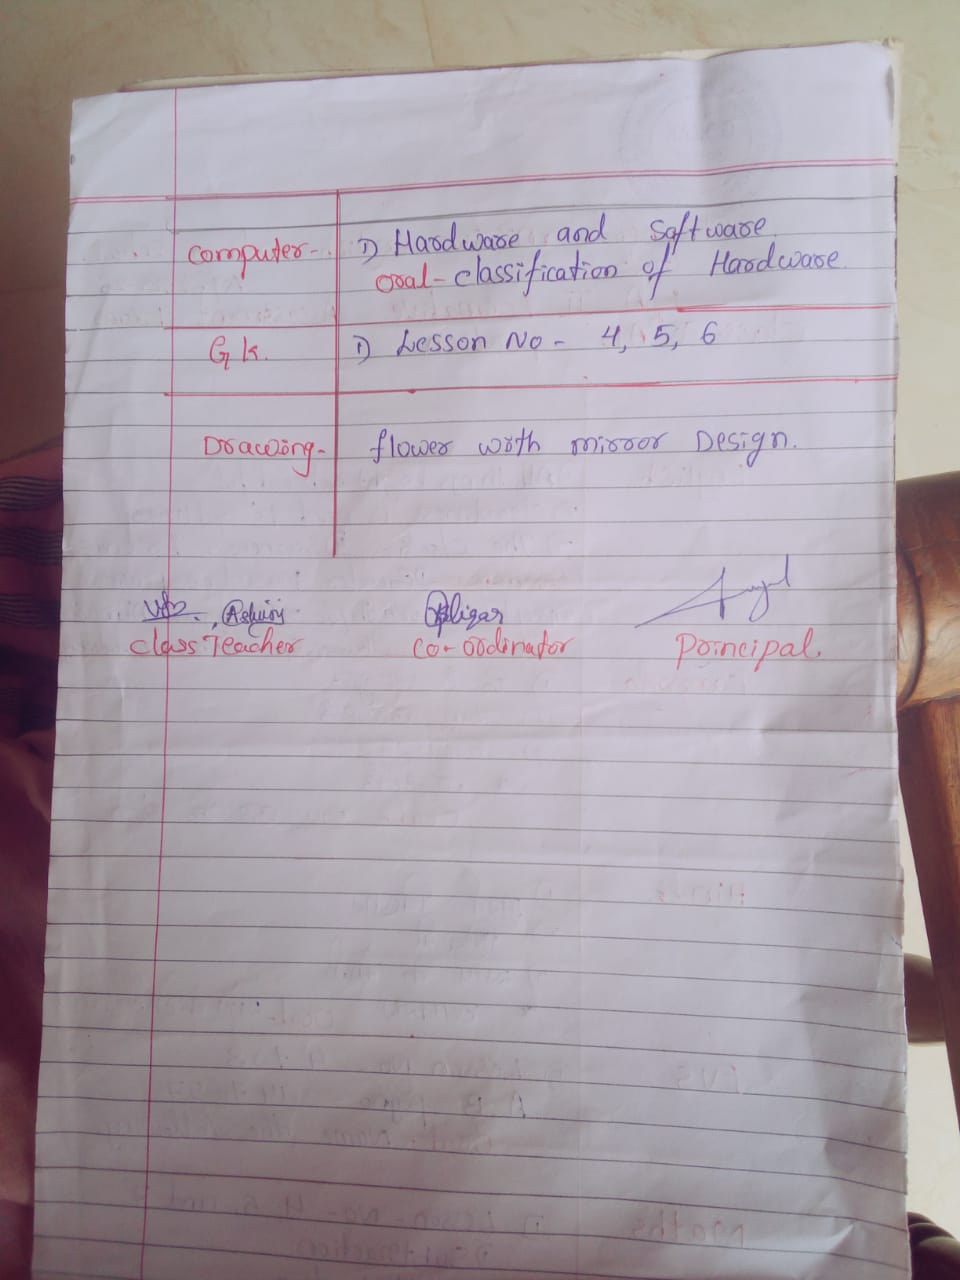 Computer- 1) Hardware and Software
oral-classification of Hardware.
G k. 1) Lesson No - 4, 5, 6
Drawing- flower with mirror Design.
class Teacher co-ordinator Principal.